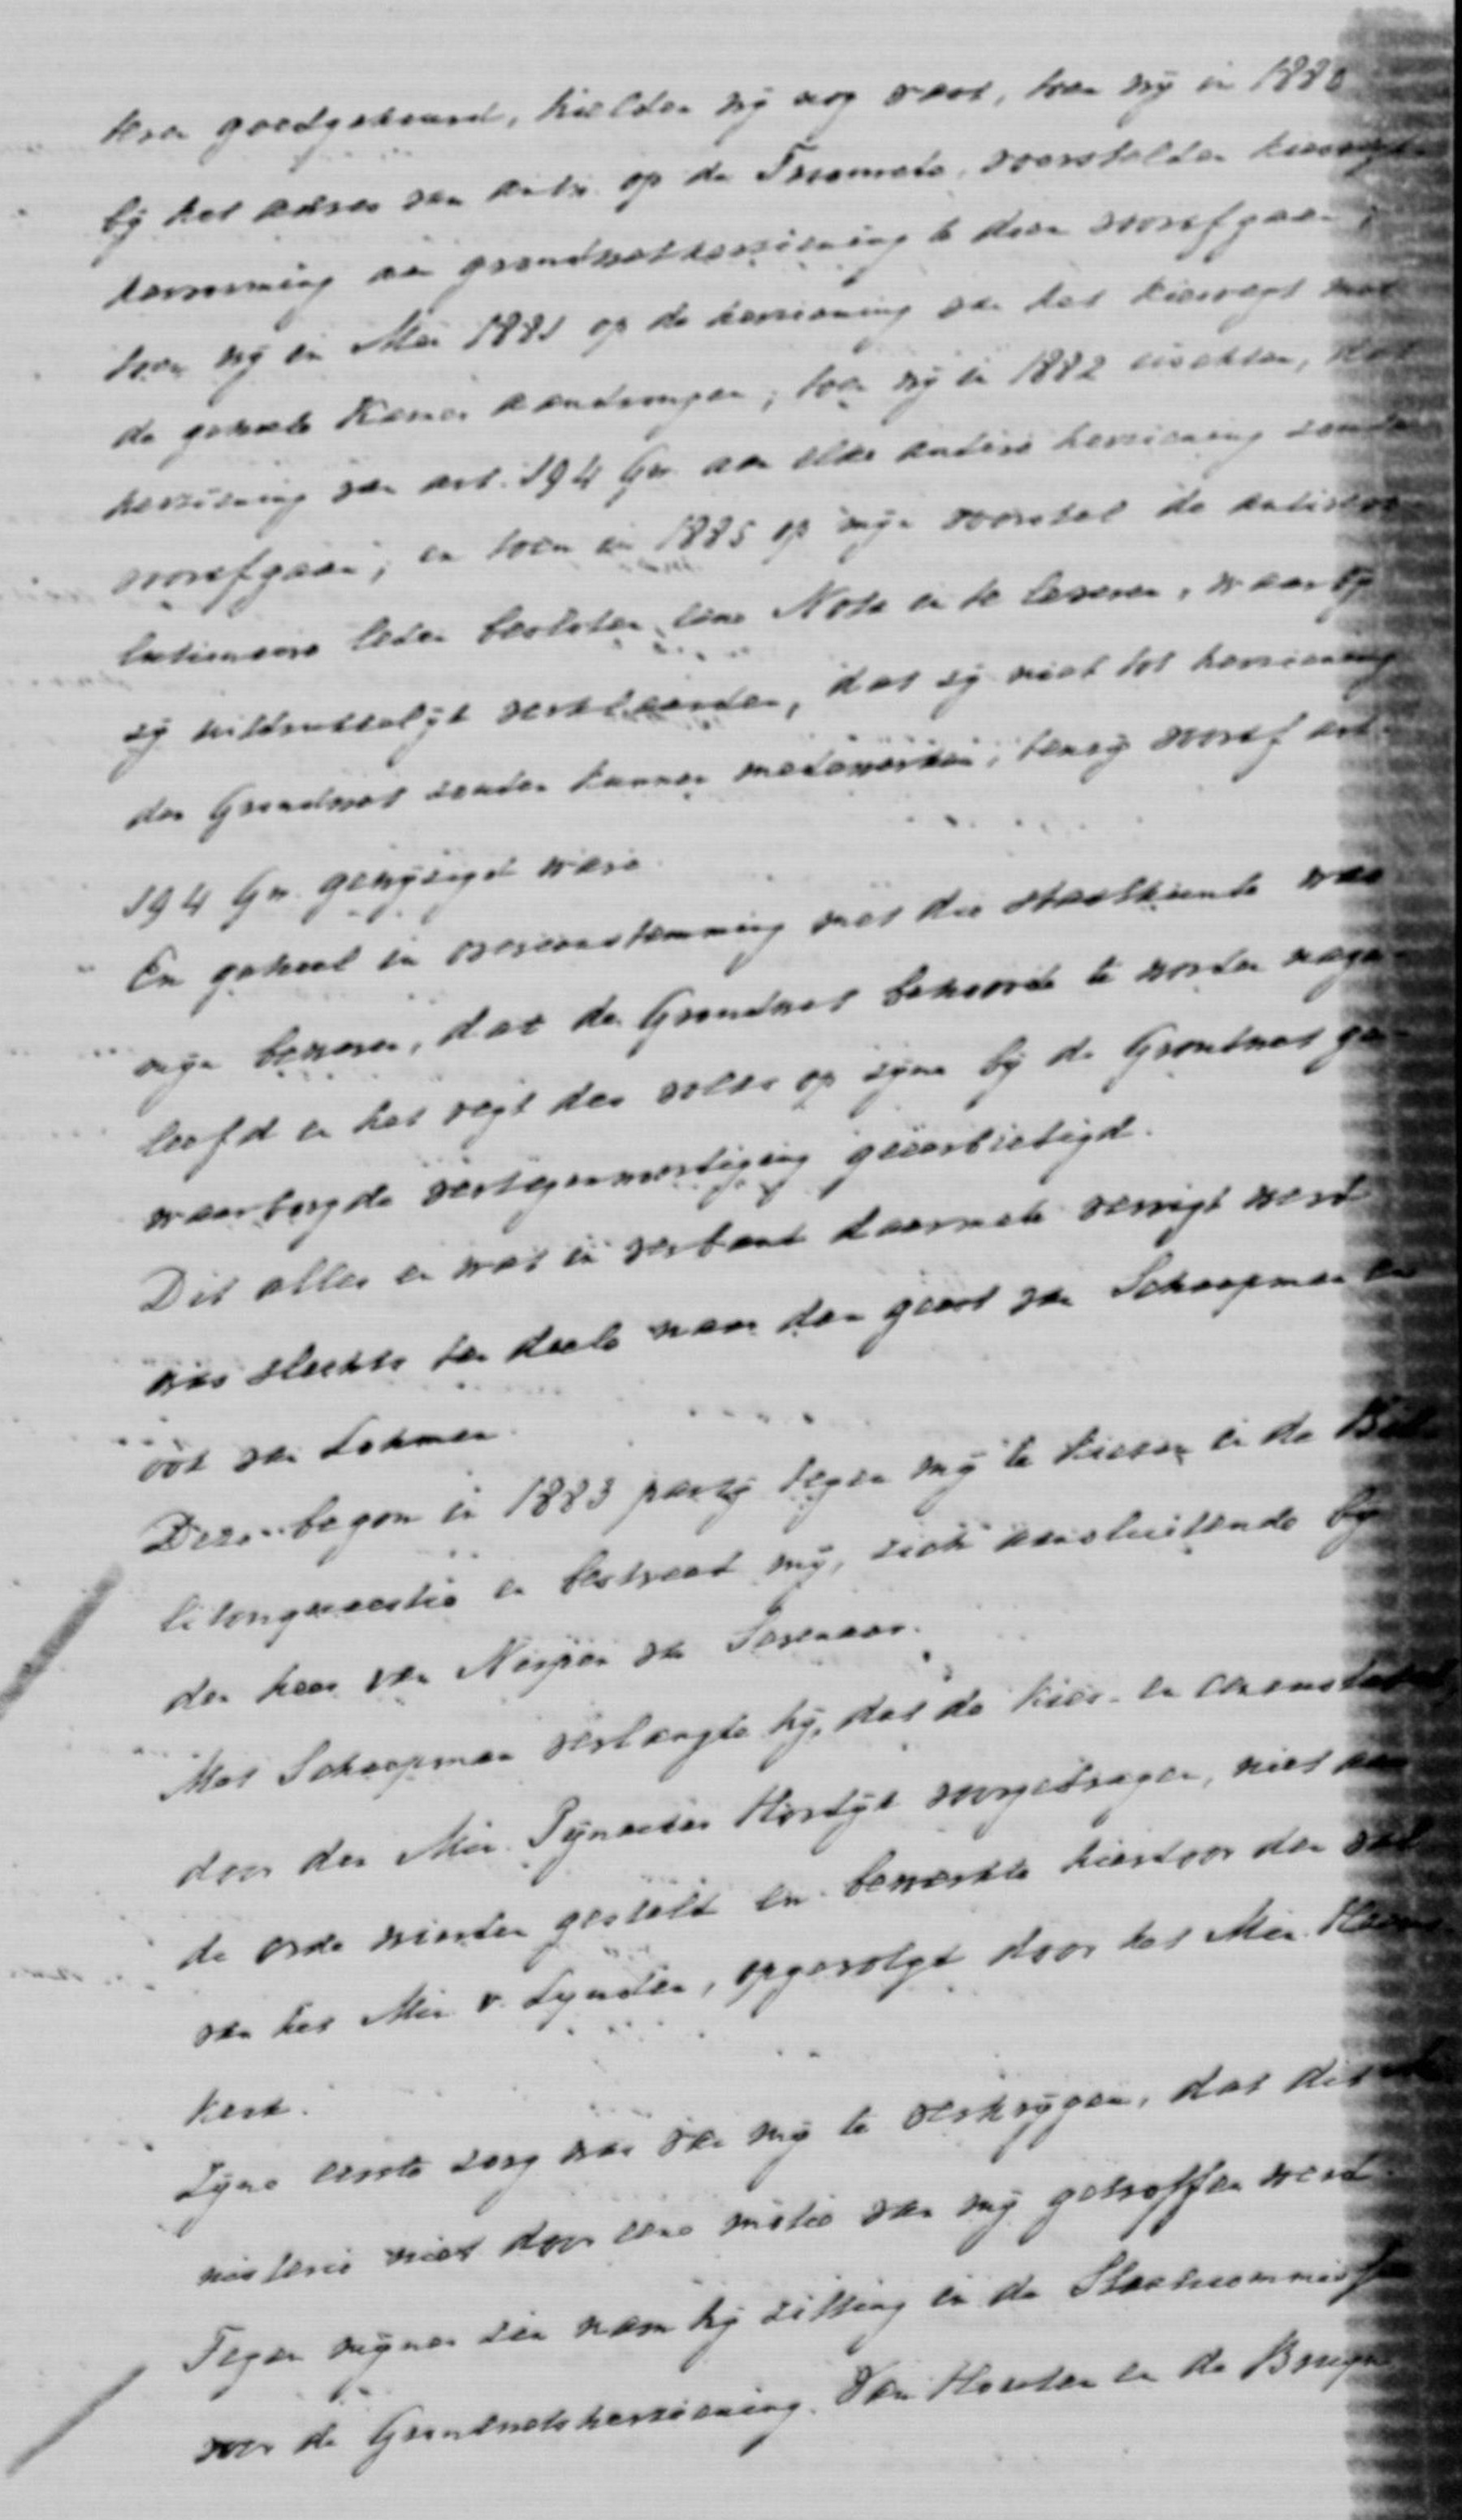 keer goedgekeurd, hielden wy nog vast, toen wy in 1880
by het adres van antw. op de Troonrede, voorstelden kiesregt-
hervorming aan grondwetsherziening te doen voorafgaan;
toen wy in Mei 1881 op de herziening van het kiesregt met
de geheele Kamer aandrongen; toen wy in 1882 eischten, dat
herziening van art. 194 Gw. aan elke andere herziening zoude
voorafgaan; en toen in 1885 op myn voorstel de antirevo-
lutionaire leden besloten eene Nota in te leveren, waarby
zy uitdrukkelyk verklaarden, dat zy niet tot herziening
der Grondwet zouden kunnen medewerken, tenzy vooraf art.
194 Gw. gewyzigd ware.
En geheel in overeenstemming met die staatkunde was
myn beweren, dat de Grondwet behoorde te worden nage-
leefd en het regt des volks op zyne by de Grondwet ge-
waarborgde vertegenwoordiging geëerbiedigd.
Dit alles en wat in verband daarmede verrigt werd
was slechts ten deele naar den geest van Schaepman en
ook van Lohman.
Deze begon in 1883 party tegen my te kiezen in de Bil-
litonquaestie en bestreed my, zich aansluitende by
den heer van Nispen van Sevenaer.
Met Schaepman verlangte hy, dat de kies- en censustabel,
door den Min. Pynacker Hordyk voorgedragen, niet aan
de orde wierden gesteld en bewerkte hierdoor den val
van het Min v. Lynden, opgevolgd door het Min. Heems-
kerk.
Zyne eerste zorg was van my te verkrygen, dat dit mi-
nisterie niet door eene motie van my getroffen werd.
Tegen mynen zin nam hy zitting in de Staatscommissie
voor de Grondwetsherziening. Van Houten en de Bruyn